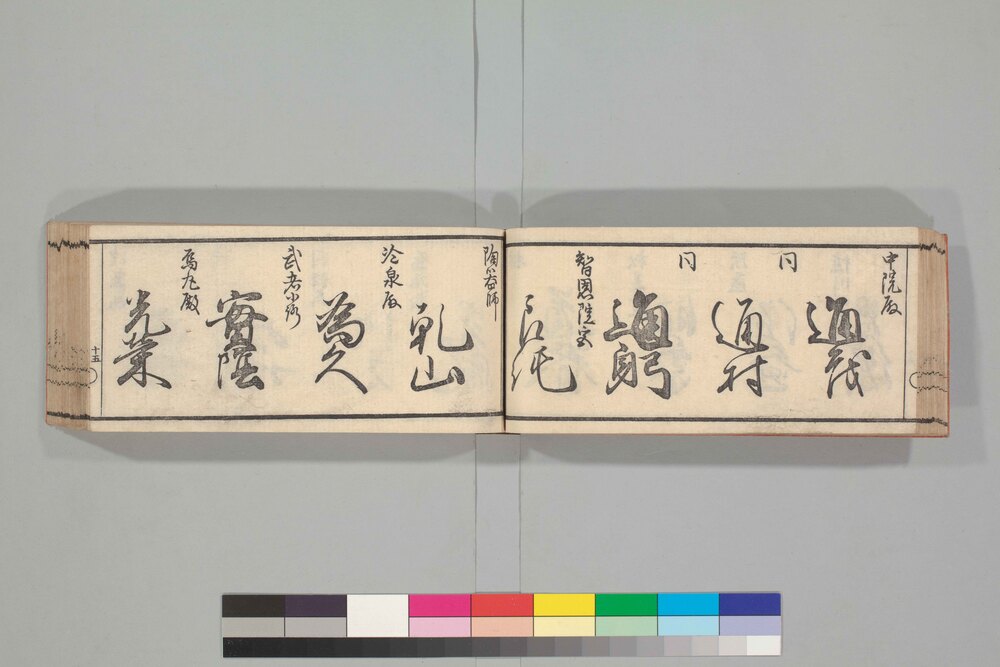 中院殿
通茂
同
通村
同
通躬
智恩院宮
陶器師
乾山
冷泉殿
為久
武者小路
実陰
烏丸殿
光栄
十五